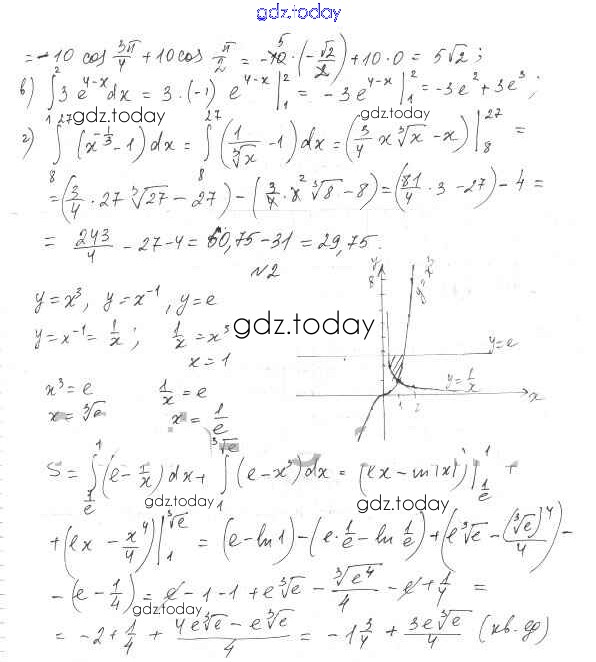 gdz.today
= -10 cos 3π/4 + 10 cos π/2 = -10⁵ · (-√2/2) + 10 · 0 = 5√2 ;
в) ∫₁² 3 e^(4-x) dx = 3 · (-1) e^(4-x) |₁² = -3e^(4-x) |₁² = -3e² + 3e³ ;
gdz.today
г) ∫₈²⁷ (x^(-1/3) - 1) dx = ∫₈²⁷ (1/∛x - 1) dx = (3/4 x ∛x - x) |₈²⁷ =
= (3/4 · 27 ∛27 - 27) - (3/4 · 8² ∛8 - 8) = (81/4 · 3 - 27) - 4 =
= 243/4 - 27 - 4 = 60,75 - 31 = 29,75.
№2
y = x³, y = x⁻¹, y = e
y = x⁻¹ = 1/x ; 1/x = x³
gdz.today
x = 1
x³ = e 1/x = e
x = ∛e x = 1/e
gdz.today
y
8
y = x³
y = e
y = 1/x
1 2
x
S = ∫_(1/e)^1 (e - 1/x) dx + ∫_1^(∛e) (e - x³) dx = (ex - ln|x|) |_(1/e)^1 +
gdz.today
gdz.today
+ (ex - x⁴/4) |_1^(∛e) = (e - ln 1) - (e · 1/e - ln 1/e) + (e ∛e - (∛e)⁴/4) -
- (e - 1/4) = e - 1 - 1 + e ∛e - ∛e⁴/4 - e + 1/4 =
gdz.today
= -2 + 1/4 + (4e ∛e - e ∛e)/4 = -1 3/4 + 3e ∛e/4 (кв. ед)
gdz.today